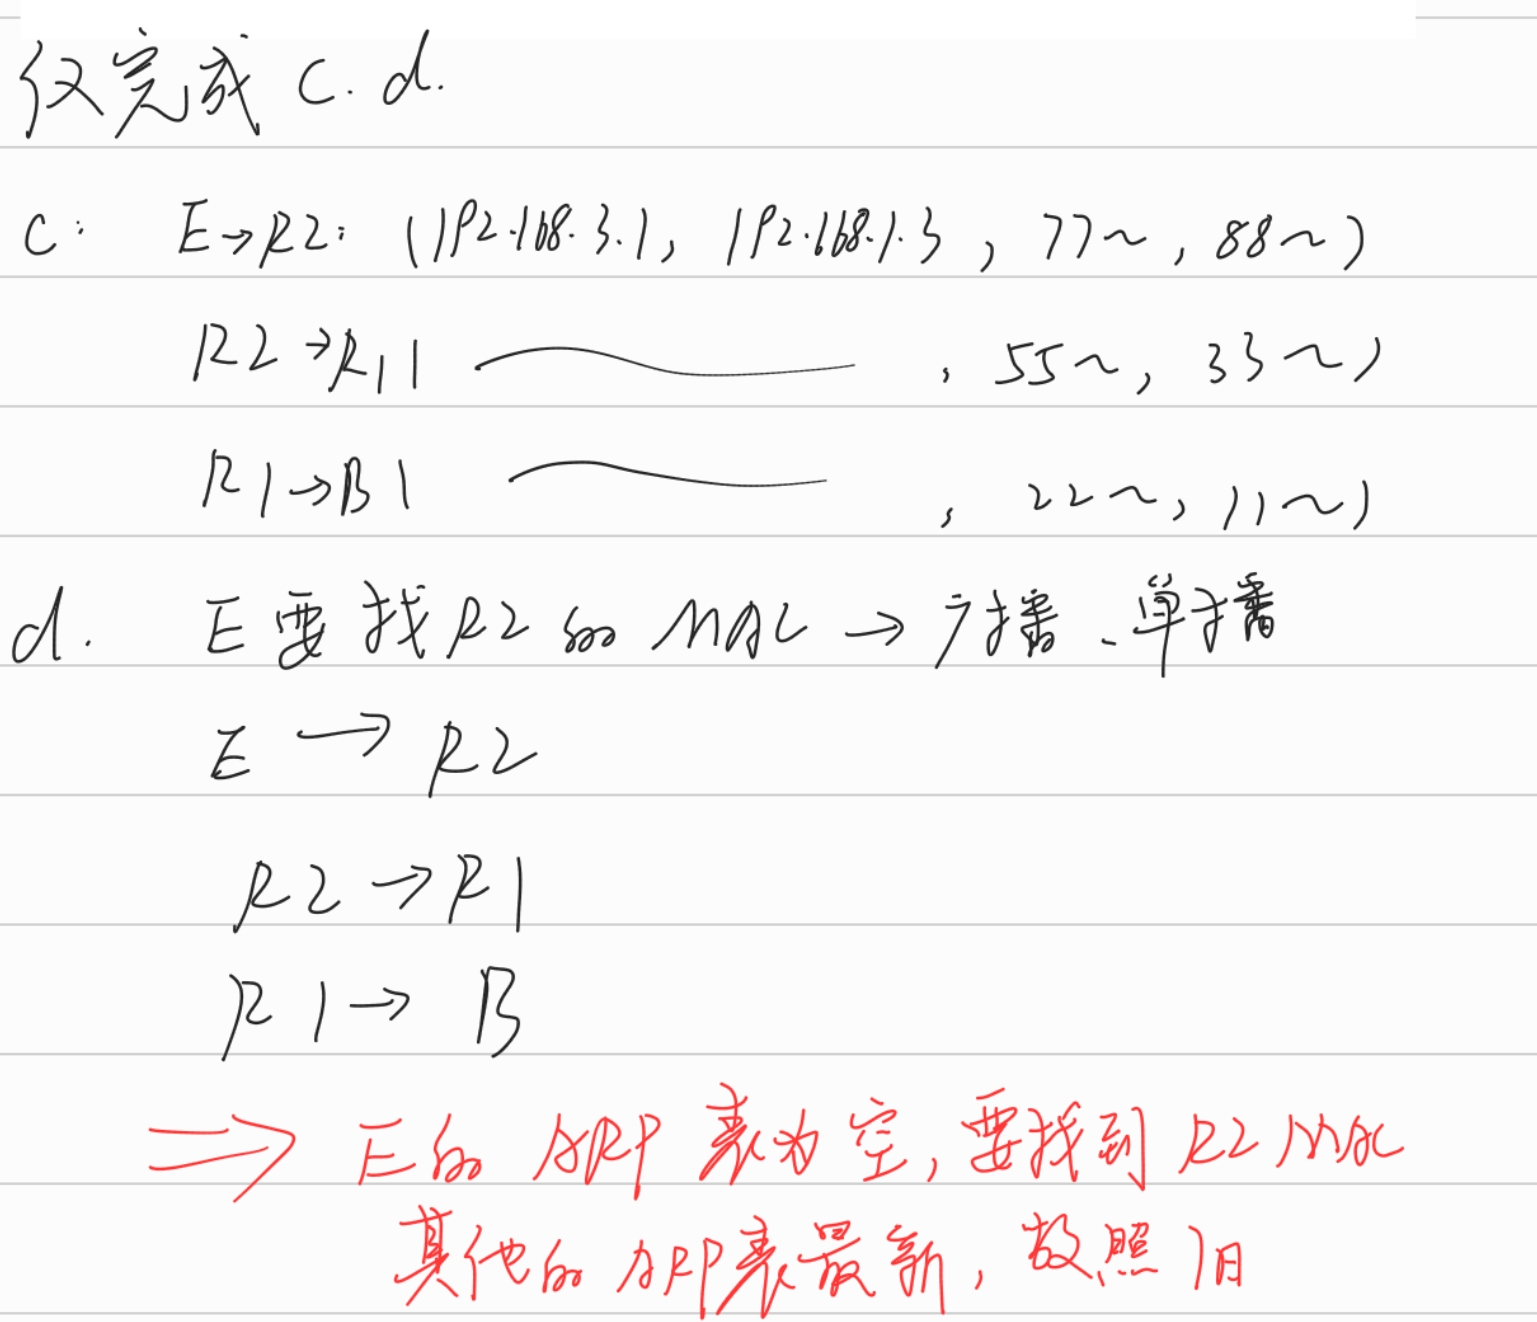 仅完成 c. d.
c: E→R2: (192.168.3.1, 192.168.1.3, 77~, 88~)
R2→R11 , 55~, 33~)
R1→B1 , 22~, 11~)
d. E要找R2的MAC→广播、单播
E→R2
R2→R1
R1→B
⇒ E的ARP表为空,要找到R2 MAC
其他的ARP表最新,故照旧